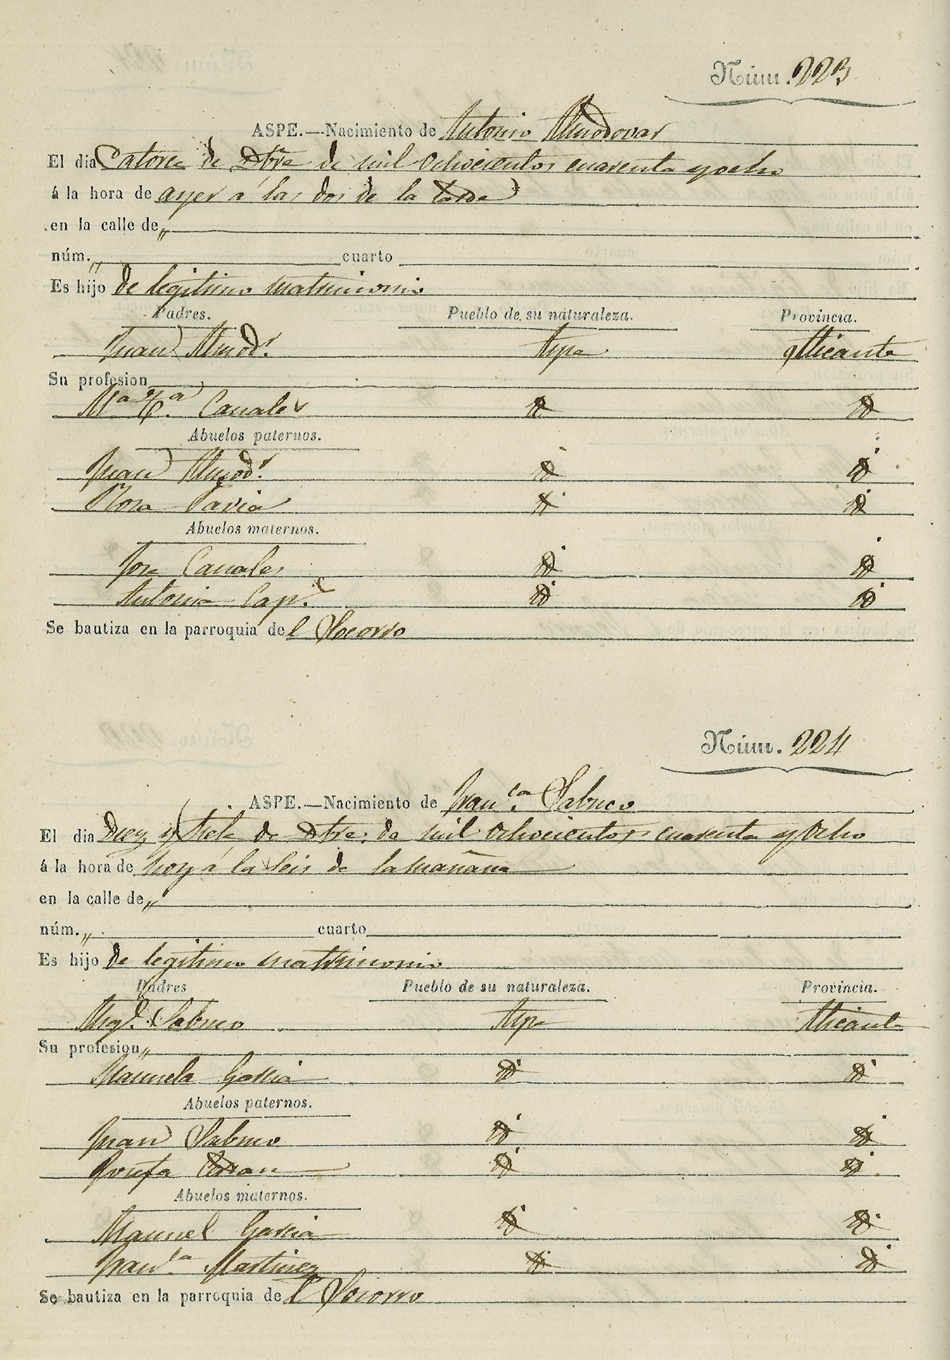 Núm. 223
ASPE.—Nacimiento de Antonio Almodovar
El dia Catorce de Dbre de mil ochocientos cuarenta y ocho
á la hora de ayer á las dos de la tarde
en la calle de „
núm. „ cuarto
Es hijo de legitimo matrimonio
Padres. Pueblo de su naturaleza. Provincia.
Juan Almodr. Aspe Alicante
Su profesion
Ma Canales id id
Abuelos paternos.
Juan Almodr. id id
Rosa Pavia id id
Abuelos maternos.
Jose Canales id id
Antonia id id
Se bautiza en la parroquia del Socorro
Núm. 224
ASPE.—Nacimiento de Franca. Sabuco
El dia Diez y siete de Dbre. de mil ochocientos cuarenta y ocho
á la hora de hoy á la seis de la mañana
en la calle de „
núm. „ cuarto
Es hijo de legitimo matrimonio
Padres Pueblo de su naturaleza. Provincia.
Migl. Sabuco Aspe Alicante
Su profesion „
Manuela Garcia id id
Abuelos paternos.
Juan Sabuco id id
Josefa id id
Abuelos maternos.
Manuel Garcia id id
Franca Martinez id id
Se bautiza en la parroquia de l Socorro